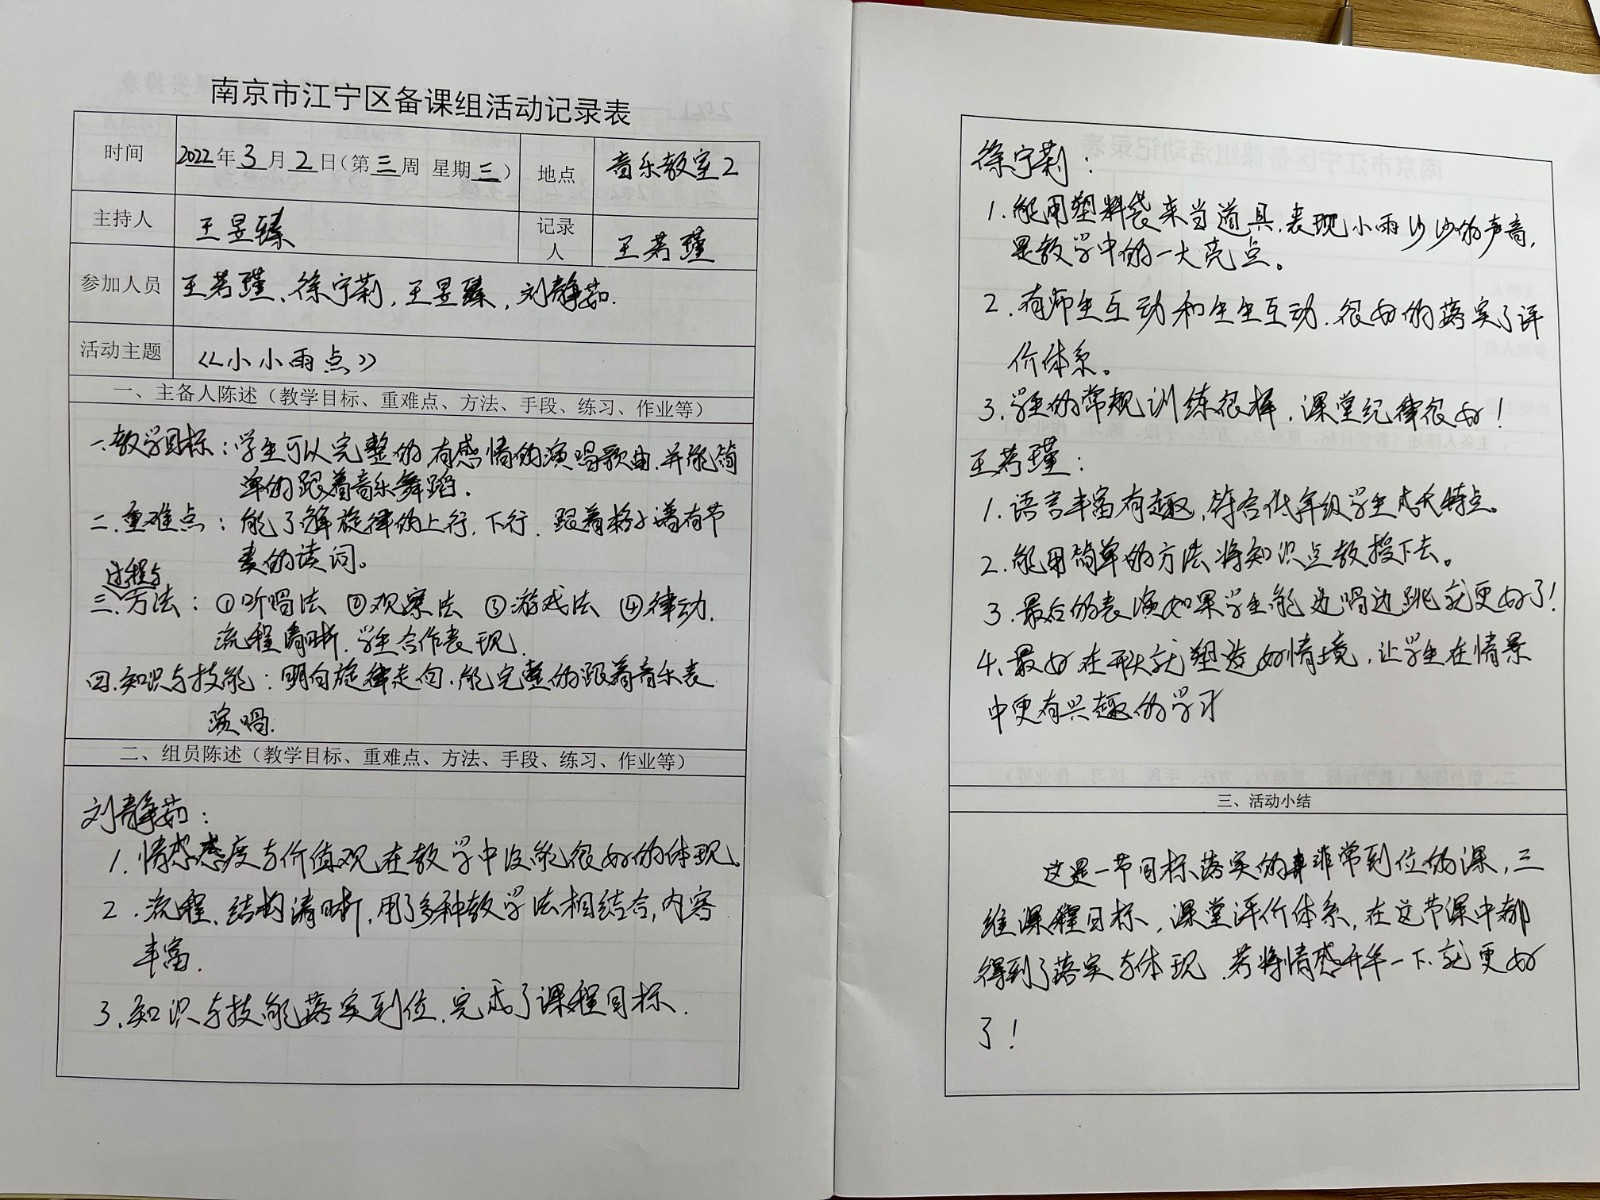 南京市江宁区备课组活动记录表
时间 2022年3月2日(第三周 星期三) 地点 音乐教室2
主持人 王昱臻 记录人 王若瑾
参加人员 王若瑾、徐宁莉,王昱臻,刘静茹.
活动主题 《小小雨点》
一、主备人陈述(教学目标、重难点、方法、手段、练习、作业等)
一.教学目标:学生可以完整的有感情的演唱歌曲.并能简
单的跟着音乐舞蹈.
二.重难点:能了解旋律的上行,下行.跟着格子谱有节
奏的读词。
过程与
三.方法:①听唱法 ②观察法 ③游戏法 ④律动.
流程清晰.学生合作表现.
四.知识与技能:明白旋律走向.能完整的跟着音乐表
演唱.
二、组员陈述(教学目标、重难点、方法、手段、练习、作业等)
刘静茹:
1.情感态度与价值观在教学中没能很好的体现。
2.流程、结构清晰,用了多种教学法相结合,内容
丰富.
3.知识与技能落实到位.完成了课程目标.
徐宁莉:
1.能用塑料袋来当道具.表现小雨沙沙的声音,
是教学中的一大亮点。
2.有师生互动和生生互动.很好的落实了评
价体系。
3.学生的常规训练很棒,课堂纪律很好!
王若瑾:
1.语言丰富有趣,符合低年级学生成长特点。
2.能用简单的方法将知识点教授下去。
3.最后的表演如果学生能边唱边跳就更好了!
4.最好在开头就塑造好情境,让学生在情景
中更有兴趣的学习
三、活动小结
这是一节目标落实的非常到位的课,三
维课程目标,课堂评价体系,在这节课中都
得到了落实与体现.若将情感升华一下.就更好
了!